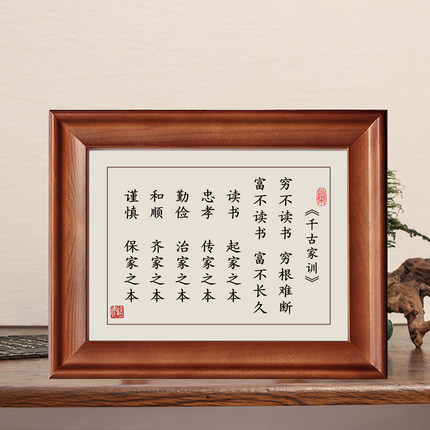 《千古家训》
穷不读书 穷根难断
富不读书 富不长久
读书 起家之本
忠孝 传家之本
勤俭 治家之本
和顺 齐家之本
谨慎 保家之本